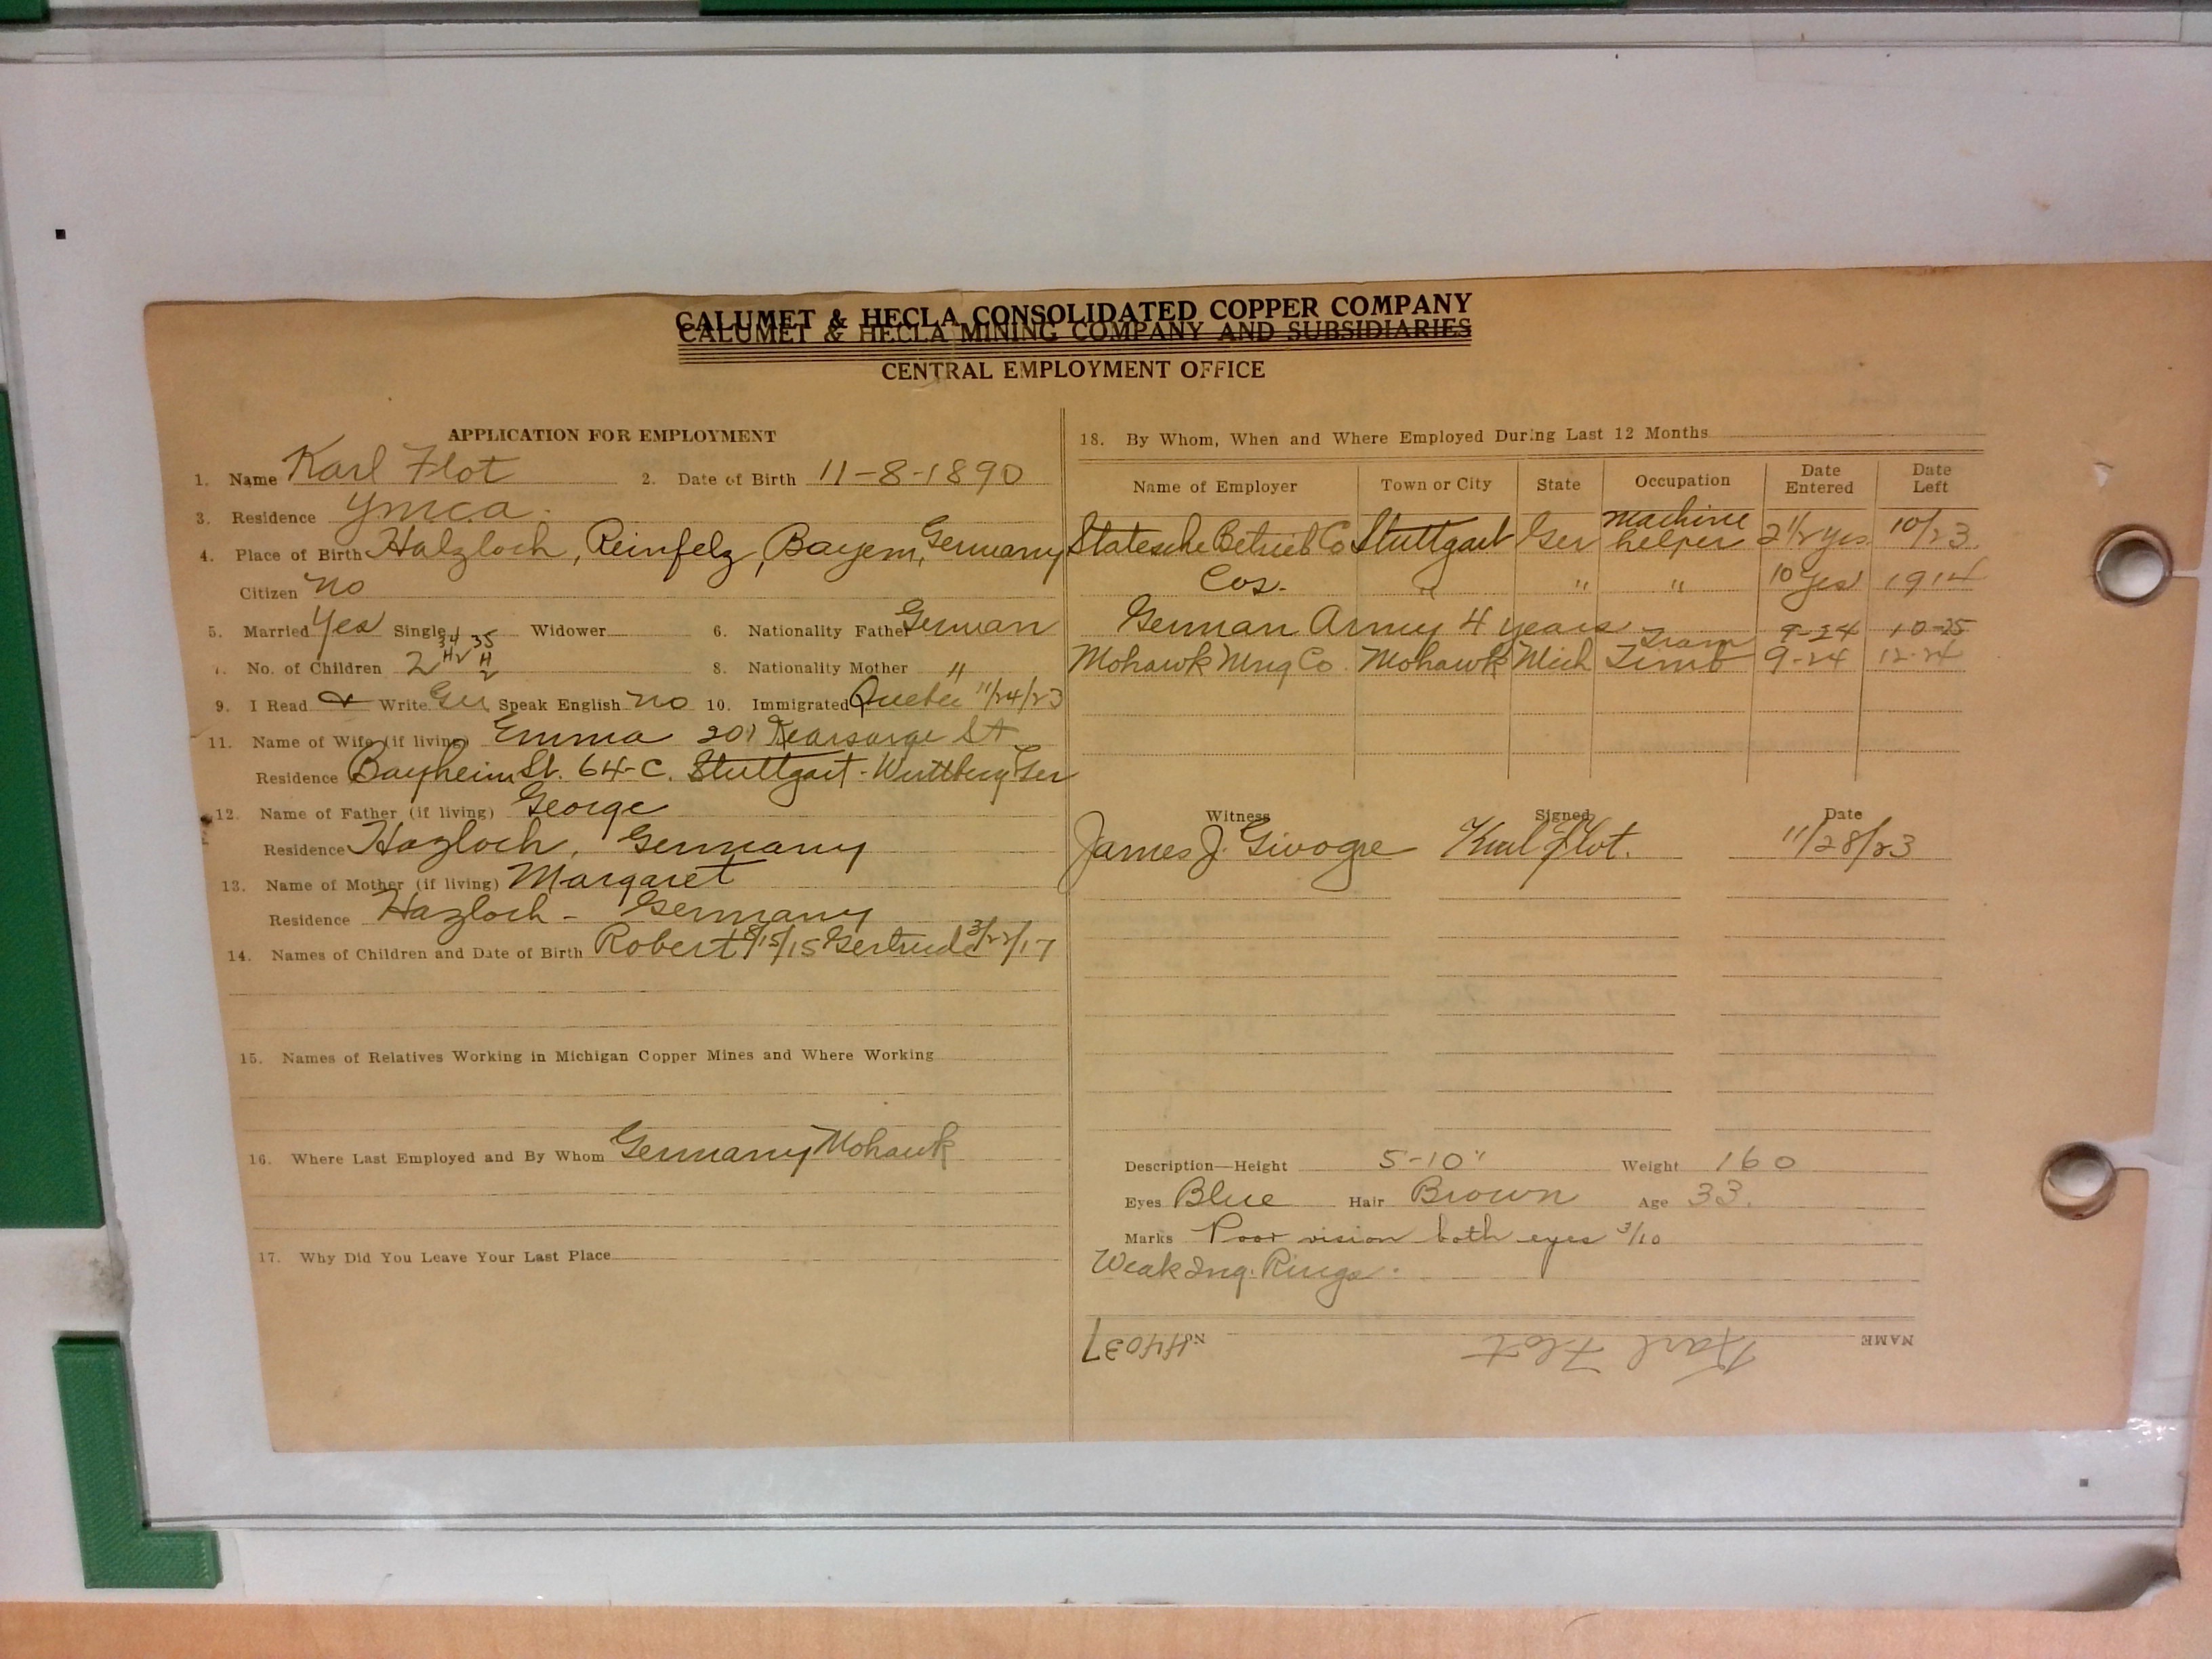 CALUMET & HECLA CONSOLIDATED COPPER COMPANY
CALUMET & HECLA MINING COMPANY AND SUBSIDIARIES
CENTRAL EMPLOYMENT OFFICE
APPLICATION FOR EMPLOYMENT
1. Name Karl Flot 2. Date of Birth 11-8-1890
3. Residence Y.m.c.a.
4. Place of Birth Halzloch, Reinfelz, Bayern, Germany
Citizen no
5. Married Yes Single Widower 6. Nationality Father German
34 35
7. No. of Children 2 8. Nationality Mother "
9. I Read & Write Ger Speak English no 10. Immigrated Quebec 11/24/23
11. Name of Wife (if living) Emma 201 Kearsarge St
Residence Bayheim St. 64-C. Stuttgart - Wurttberg Ger
12. Name of Father (if living) George
Residence Hazloch, Germany
13. Name of Mother (if living) Margaret
Residence Hazloch - Germany
14. Names of Children and Date of Birth Robert 8/15/15 Gertrude 3/22/17
15. Names of Relatives Working in Michigan Copper Mines and Where Working
16. Where Last Employed and By Whom Germany Mohawk
17. Why Did You Leave Your Last Place
18. By Whom, When and Where Employed During Last 12 Months
Name of Employer Town or City State Occupation Date Entered Date Left
Statesche Betrieb Co Stuttgart Ger machine helper 2 1/2 yrs 10/23
Cos. " " " 10 yrs 1914
German Army 4 years 9-24 10-25
Mohawk Mng Co. Mohawk Mich Tram Timb 9-24 12-24
Witness Signed Date
James J. Givogre Karl Flot. 11/28/23
Description—Height 5-10" Weight 160
Eyes Blue Hair Brown Age 33.
Marks Poor vision both eyes 3/10
Weak Ing. Rings.
NAME Karl Flot No. H4037